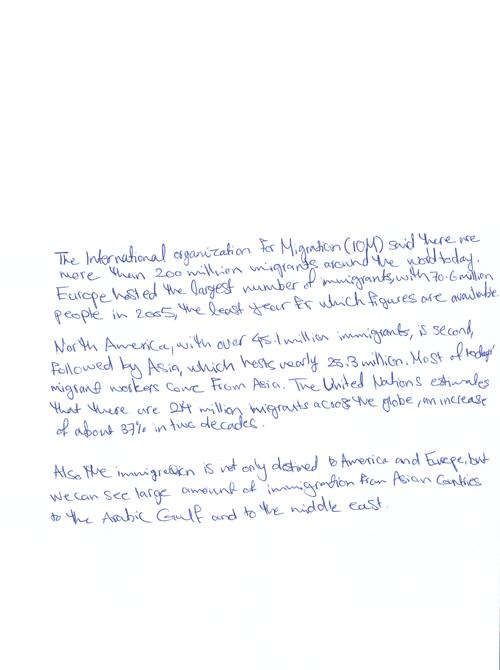 The International organization For Migration (IOM) said there are
more than 200 million migrants around the world today.
Europe hosted the largest number of immigrants, with 70.6 million
people in 2005, the least year for which figures are available.
North America, with over 45.1 million immigrants, is second,
followed by Asia, which hosts nearly 25.3 million. Most of todays'
migrant workers come From Asia. The United Nations estimates
that there are 214 million migrants across the globe, an increase
of about 37% in two decades.
Also the immigration is not only destined to America and Europe, but
we can see large amount of immigration from Asian Countries
to the Arabic Gulf and to the middle east.